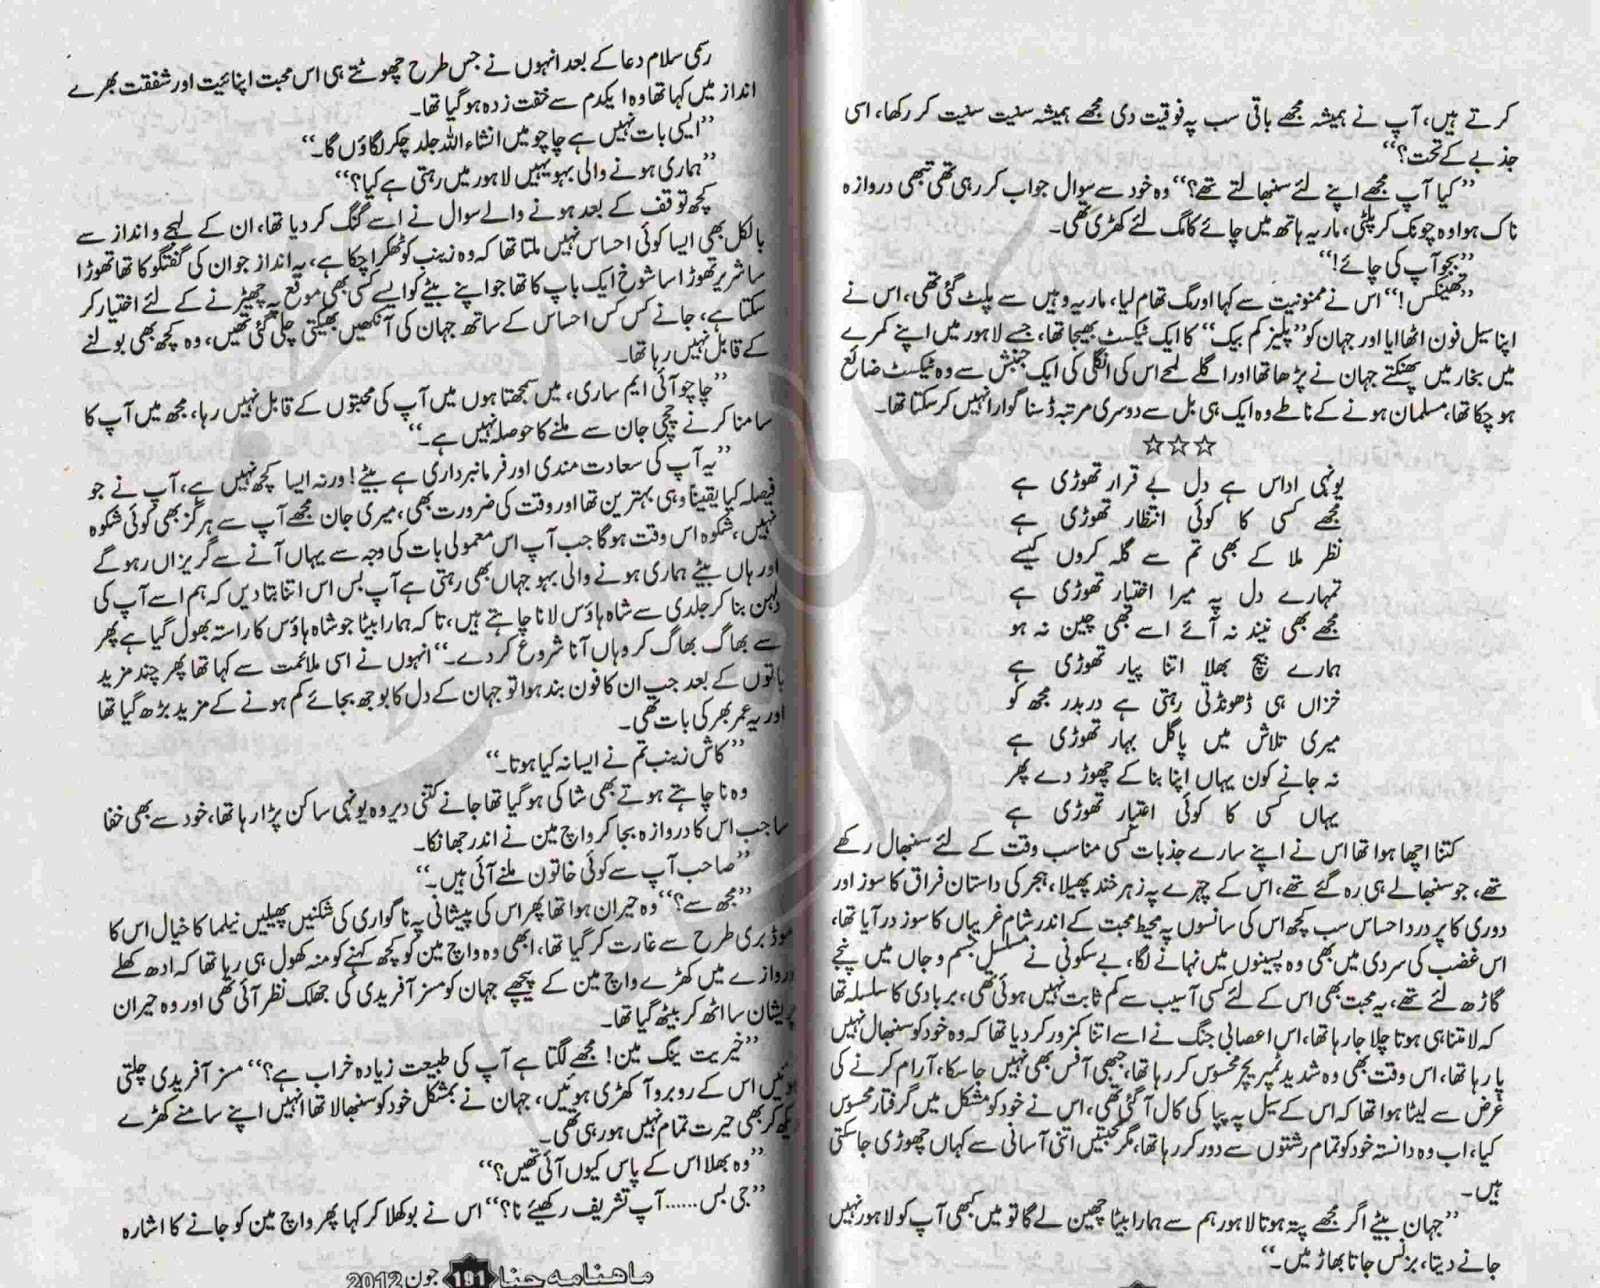 کرتے ہیں، آپ نے ہمیشہ مجھے باقی سب پہ فوقیت دی مجھے ہمیشہ سنیت سنیت کر رکھا، اسی
جذبے کے تحت؟‘‘
’’کیا آپ مجھے اپنے لئے سنبھالتے تھے؟‘‘ وہ خود سے سوال جواب کر رہی تھی تبھی دروازہ
ناک ہوا وہ چونک کر پلٹی، ماریہ ہاتھ میں چائے کا مگ لئے کھڑی تھی۔
’’بجو آپ کی چائے!‘‘
’’تھینکس!‘‘ اس نے ممنونیت سے کہا اور مگ تھام لیا، ماریہ وہیں سے پلٹ گئی تھی، اس نے
اپنا سیل فون اٹھایا اور جہان کو ’’پلیز کم بیک‘‘ کا ایک ٹیکسٹ بھیجا تھا، جسے لاہور میں اپنے کمرے
میں بخار میں پھنکتے جہان نے پڑھا تھا اور اگلے لمحے اس کی انگلی کی ایک جنبش سے وہ ٹیکسٹ ضائع
ہو چکا تھا، مسلمان ہونے کے ناطے وہ ایک ہی بل سے دوسری مرتبہ ڈسنا گوارا نہیں کر سکتا تھا۔
☆☆☆
یونہی اداس ہے دل بے قرار تھوڑی ہے
مجھے کسی کا کوئی انتظار تھوڑی ہے
نظر ملا کے بھی تم سے گلہ کروں کیسے
تمہارے دل پہ میرا اختیار تھوڑی ہے
مجھے بھی نیند نہ آئے اسے بھی چین نہ ہو
ہمارے بیچ بھلا اتنا پیار تھوڑی ہے
خزاں ہی ڈھونڈتی رہتی ہے دربدر مجھ کو
میری تلاش میں پاگل بہار تھوڑی ہے
نہ جانے کون یہاں اپنا بنا کے چھوڑ دے پھر
یہاں کسی کا کوئی اعتبار تھوڑی ہے
کتنا اچھا ہوا تھا اس نے اپنے سارے جذبات کسی مناسب وقت کے لئے سنبھال رکھے
تھے، جو سنبھالے ہی رہ گئے تھے، اس کے چہرے پہ زہر خند پھیلا، ہجر کی داستان فراق کا سوز اور
دوری کا پر درد احساس سب کچھ اس کی سانسوں پہ محیط محبت کے اندر شام غریباں کا سوز در آیا تھا،
اس غضب کی سردی میں بھی وہ پسینوں میں نہانے لگا، بے سکونی نے مسلسل جسم و جاں میں پنجے
گاڑھ لئے تھے، یہ محبت بھی اس کے لئے کسی آسیب سے کم ثابت نہیں ہوئی تھی، بربادی کا سلسلہ تھا
کہ لامتناہی ہوتا چلا جا رہا تھا، اس اعصابی جنگ نے اسے اتنا کمزور کر دیا تھا کہ وہ خود کو سنبھال نہیں
پا رہا تھا، اس وقت بھی وہ شدید ٹمپریچر محسوس کر رہا تھا، جبھی آفس بھی نہیں جا سکا، آرام کرنے کی
غرض سے لیٹا ہوا تھا کہ اس کے سیل پہ پپا کی کال آ گئی تھی، اس نے خود کو مشکل میں گرفتار محسوس
کیا، اب وہ دانستہ خود کو تمام رشتوں سے دور کر رہا تھا، مگر محبتیں اتنی آسانی سے کہاں چھوڑی جا سکتی
ہیں۔
’’جہان بیٹے اگر مجھے پتہ ہوتا لاہور ہم سے ہمارا بیٹا چھین لے گا تو میں کبھی آپ کو لاہور نہیں
جانے دیتا، بزنس جاتا بھاڑ میں۔‘‘
رسمی سلام دعا کے بعد انہوں نے جس طرح چھوٹتے ہی اس محبت اپنائیت اور شفقت بھرے
انداز میں کہا تھا وہ ایکدم سے خفت زدہ ہو گیا تھا۔
’’ایسی بات نہیں ہے چاچو میں انشاء اللہ جلد چکر لگاؤں گا۔‘‘
’’ہماری ہونے والی بہو یہیں لاہور میں رہتی ہے کیا؟‘‘
کچھ توقف کے بعد ہونے والے سوال نے اسے گنگ کر دیا تھا، ان کے لہجے و انداز سے
بالکل بھی ایسا کوئی احساس نہیں ملتا تھا کہ وہ زینب کو ٹھکرا چکا ہے، یہ انداز جو ان کی گفتگو کا تھا تھوڑا
سا شریر تھوڑا سا شوخ ایک باپ کا تھا جو اپنے بیٹے کو ایسے کسی بھی موقع پہ چھیڑنے کے لئے اختیار کر
سکتا ہے، جانے کس کس احساس کے ساتھ جہان کی آنکھیں بھیگتی چلی گئی تھیں، وہ کچھ بھی بولنے
کے قابل نہیں رہا تھا۔
’’چاچو آئی ایم ساری، میں سمجھتا ہوں میں آپ کی محبتوں کے قابل نہیں رہا، مجھ میں آپ کا
سامنا کرنے چچی جان سے ملنے کا حوصلہ نہیں ہے۔‘‘
’’یہ آپ کی سعادت مندی اور فرمانبرداری ہے بیٹے! ورنہ ایسا کچھ نہیں ہے، آپ نے جو
فیصلہ کیا یقیناً وہی بہترین تھا اور وقت کی ضرورت بھی، میری جان مجھے آپ سے ہرگز بھی کوئی شکوہ
نہیں، شکوہ اس وقت ہوگا جب آپ اس معمولی بات کی وجہ سے یہاں آنے سے گریزاں رہو گے
اور ہاں بیٹے ہماری ہونے والی بہو جہاں بھی رہتی ہے آپ بس اس اتنا بتا دیں کہ ہم اسے آپ کی
دلہن بنا کر جلدی سے شاہ ہاؤس لانا چاہتے ہیں، تاکہ ہمارا بیٹا جو شاہ ہاؤس کا راستہ بھول گیا ہے پھر
سے بھاگ بھاگ کر وہاں آنا شروع کر دے۔‘‘ انہوں نے اسی ملائمت سے کہا تھا پھر چند مزید
باتوں کے بعد جب ان کا فون بند ہوا تو جہان کے دل کا بوجھ بجائے کم ہونے کے مزید بڑھ گیا تھا
اور یہ عمر بھر کی بات تھی۔
’’کاش زینب تم نے ایسا نہ کیا ہوتا۔‘‘
وہ نا چاہتے ہوئے بھی شاکی ہو گیا تھا جانے کتنی دیر وہ یونہی ساکن پڑا رہا تھا، خود سے بھی خفا
سا جب اس کا دروازہ بجا کر واچ مین نے اندر جھانکا۔
’’صاحب آپ سے کوئی خاتون ملنے آئی ہیں۔‘‘
’’مجھ سے؟‘‘ وہ حیران ہوا تھا پھر اس کی پیشانی پہ ناگواری کی شکنیں پھیلیں نیلما کا خیال اس کا
موڈ بری طرح سے غارت کر گیا تھا، ابھی وہ واچ مین کو کچھ کہنے کو منہ کھول ہی رہا تھا کہ ادھ کھلے
دروازے میں کھڑے واچ مین کے پیچھے جہان کو مسز آفریدی کی جھلک نظر آئی تھی اور وہ حیران
پریشان سا اٹھ کر بیٹھ گیا تھا۔
’’خیریت ینگ مین! مجھے لگتا ہے آپ کی طبیعت زیادہ خراب ہے؟‘‘ مسز آفریدی چلتی
ہوئیں اس کے روبرو آ کھڑی ہوئیں، جہان نے بمشکل خود کو سنبھالا تھا انہیں اپنے سامنے کھڑے
دیکھ کر بھی حیرت تمام نہیں ہو رہی تھی۔
’’وہ بھلا اس کے پاس کیوں آئی تھیں؟‘‘
’’جی بس...... آپ تشریف رکھیئے نا؟‘‘ اس نے بوکھلا کر کہا پھر واچ مین کو جانے کا اشارہ
ماہنامہ حنا 191 جون 2012